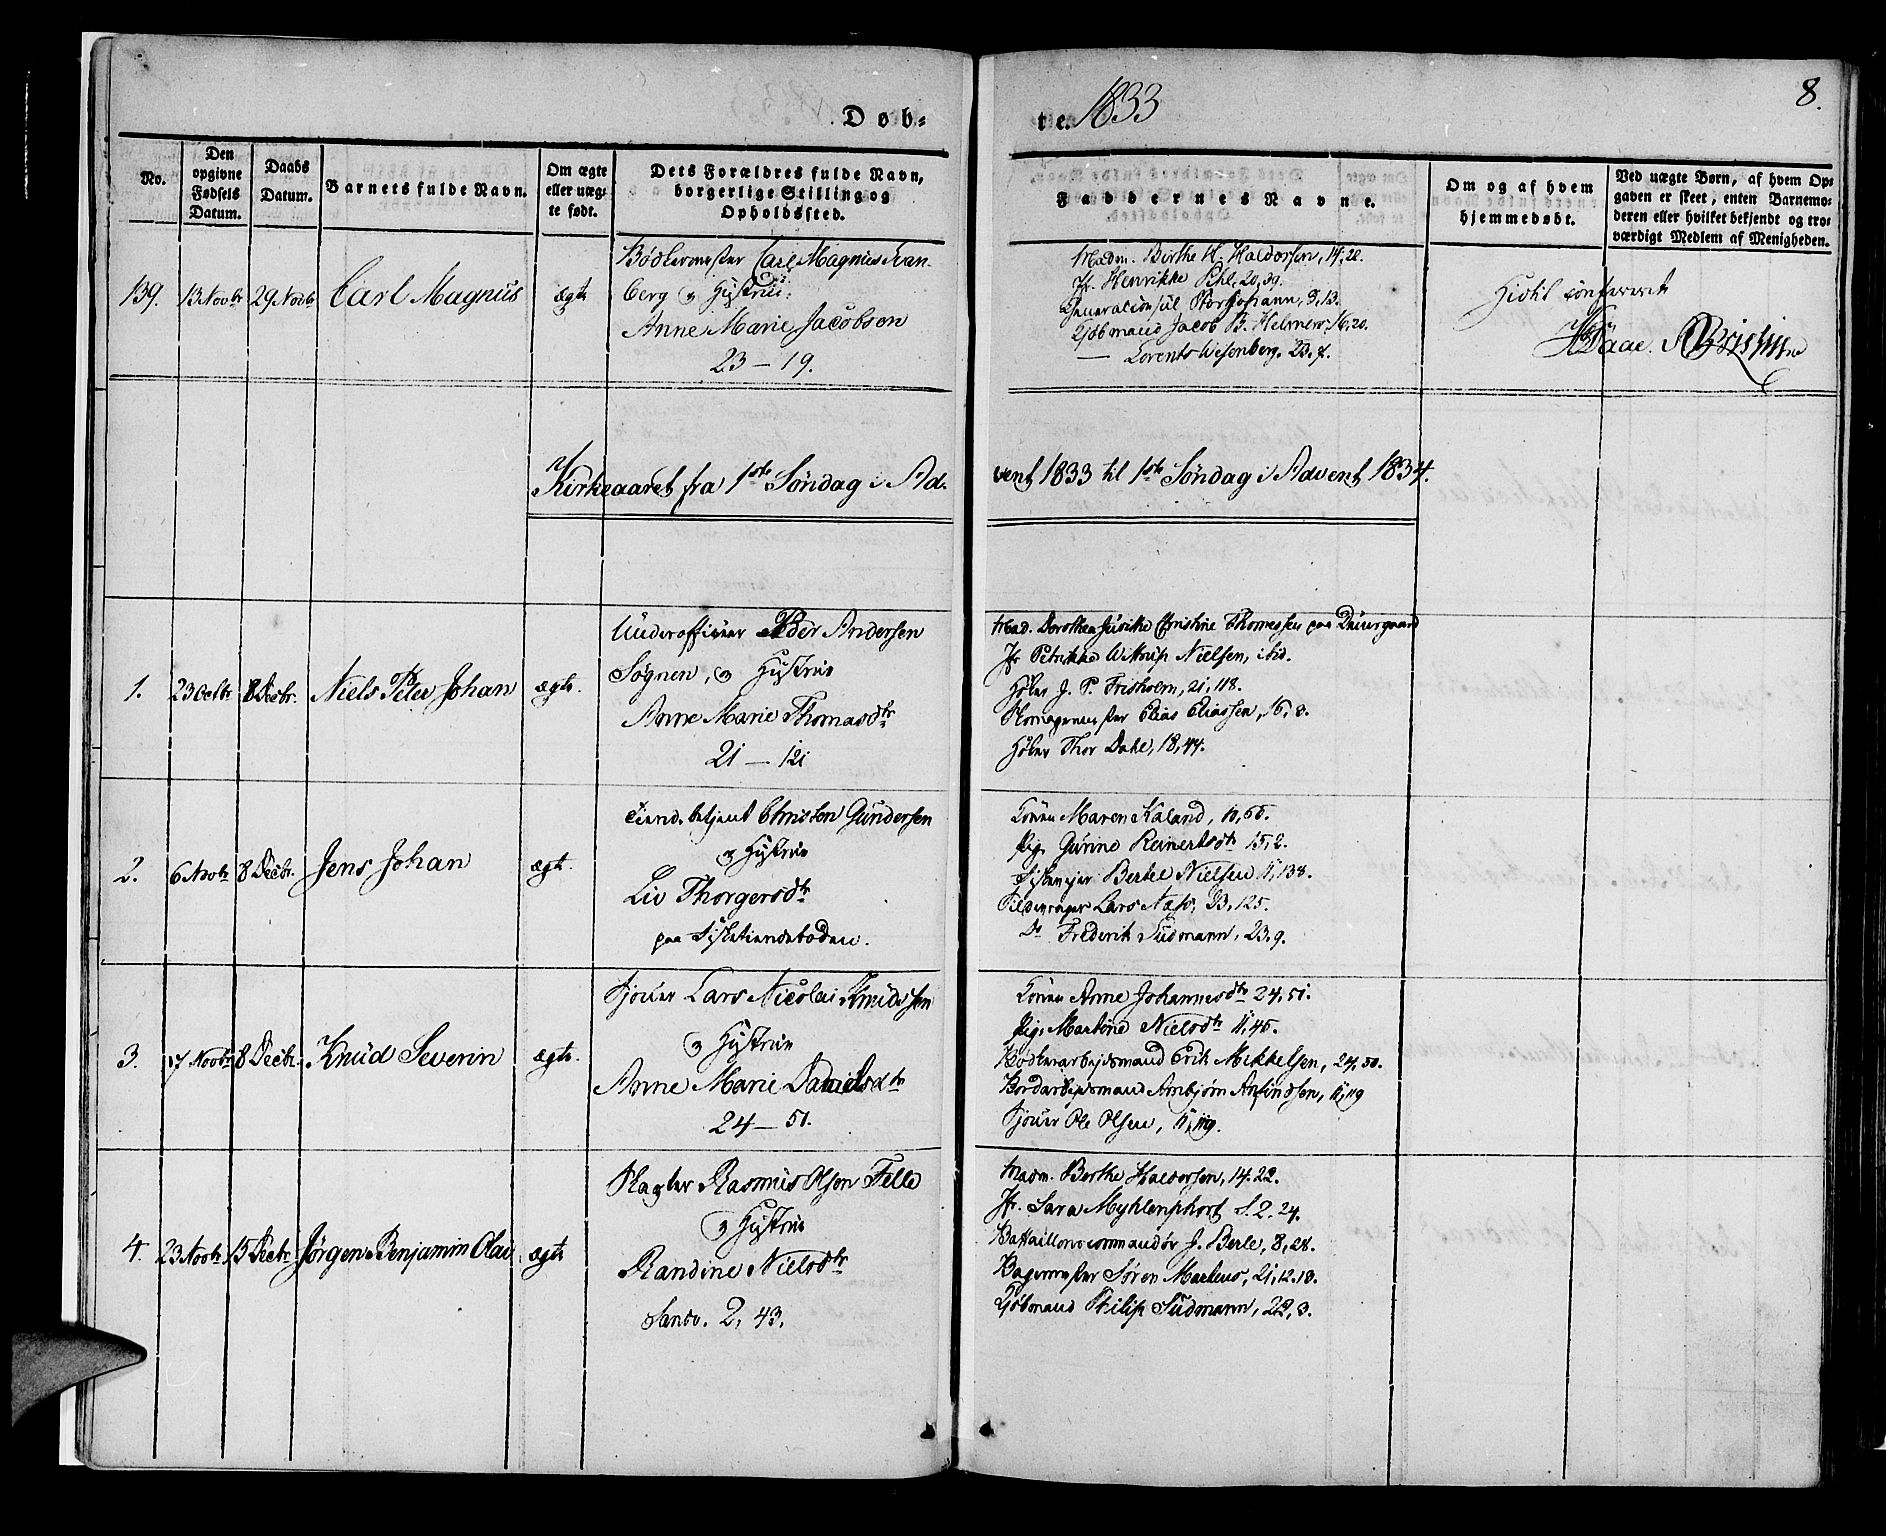 8.
Døb-
te. 1833
No.
Den opgivne Fødsels Datum.
Daabs Datum.
Barnets fulde Navn.
Om ægte eller uægte født.
Dets Forældres fulde Navn, borgerlige Stilling og Opholdssted.
Faddernes Navne.
Om og af hvem hjemmedøbt.
Ved uægte Børn, af hvem Opgaven er skeet, enten Barnemoderen eller hvilket bekjendt og troværdigt Medlem af Menigheden.
139. 13 Novbr 29 Novbr Carl Magnus ægte
Bødkermester Carl Magnus Svan-
berg og Hustrue:
Anne Marie Jacobsen
23 — 19.
Madm. Birthe H. Haldorsen, 14, 22.
Jfr. Henrikke Pihl, 20, 39.
Generalconsul Konow
Kjøbmand Jacob B. Helmers, 16, 20.
— Lorents Wesenberg, 23, 7.
Hidtil confereret
Kirkeaaret fra 1ste Søndag i Ad-
vent 1833 til 1ste Søndag i Advent 1834.
1. 23 Octbr 8 Decbr. Niels Peter Johan ægte.
Underofficier Peder Andersen
Søgnen, og Hustrue
Anne Marie Thomasdtr
21 — 121
Mad. Dorothea Christine Thomessen paa
Jfr Petrikke Wittrup Nielsen, ibid.
J. P. Frisholm, 21, 118.
Skomagermester Elias Eliassen, 16, 8.
Thor Dale, 18, 44.
2. 6 Novbr 8 Decbr. Jens Johan ægte.
Tiendebetjent Christen Gundersen
og Hustrue
Liv Thorgersdtr
paa Fisketiendeboden.
Konen Maren Kaland, 10, 68.
Pig. Gurine Reinertsdtr 15, 2.
Bertel Nielsen 11, 138.
Lars Næss, 23, 125.
Do Frederik Sudmann, 23, 9.
3. 17 Novbr 8 Decbr. Knud Severin ægte.
Sjouer Lars Nicolai Knudssen
og Hustrue
Anne Marie Danielsdtr
24 — 51.
Konen Anne Johannesdtr 24, 51.
Pig. Martine Nielsdtr 11, 45.
Bødkerarbejdsmand Erik Mikkelsen, 24, 50.
Bordarbejdsmand Arnbjørn Anfindsen, 11, 119
Sjouer Ole Olsen, 11, 119.
4. 23 Novbr 15 Decbr Jørgen Benjamin Olai ægte
Vægter Rasmus Olsen Telle
og Hustrue
Randine Nielsdtr
Sandv. 2, 43.
Madm. Berthe Haldorsen, 14. 22.
Jfr. Sara Myhlenphort S. 2. 24.
Battaillonscommandør J. Berle, 8, 28.
Bagermester Søren Martens, 21, 12. 13.
Kjøbmand Philip Sudmann, 22, 3.